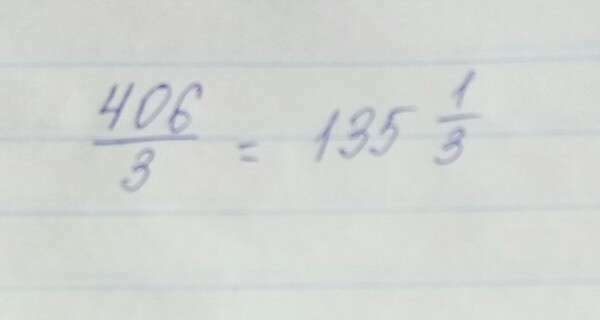 406/3 = 135 1/3